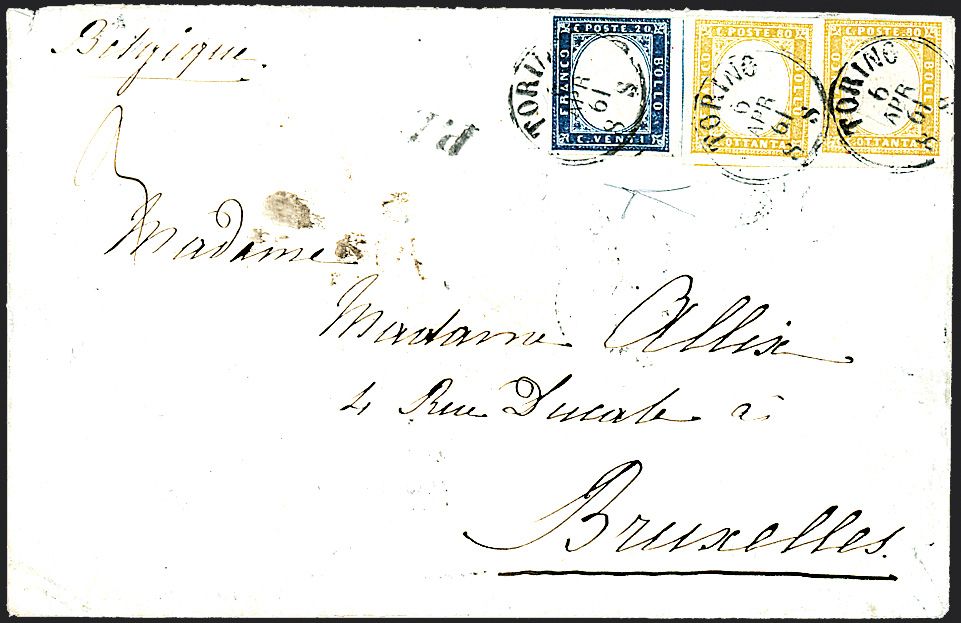 Belgique.
C. POSTE. 20
FRANCO
BOLLO
C. VENTI
C. POSTE. 80
BOLLO
OTTANTA
C. POSTE. 80
BOLLO
OTTANTA
TORINO
6
APR
61
8 S
TORINO
6
APR
61
8 S
P.D.
Madame
Madame Allix
4 Rue Ducale à
Bruxelles.